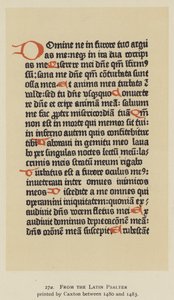 Domine ne in furore tuo argu
as me: neqʒ in ira tua corripi
as me Miserere mei dn̄e qm̄ infirm9
sū: sana me dn̄e qm̄ cōturbata sunt
ossa mea Et anima mea turbata ē
valde: sed tu dn̄e vsqʒquo Conuerte
re dn̄e et eripe animā meā: saluum
me fac ꝓpter misericordiā tuā Qm̄
non est in morte qui memor sit tui:
in inferno autem quis confitebitur
tibi Laboraui in gemitu meo laua
bo per singulas noctes lectū meū: la
crimis meis stratū meum rigabo
Turbatus est a furore oculus meus:
inueteraui inter omnes inimicos
meos Discedite a me omnes qui
operamini iniquitatem: quoniā ex
audiuit dn̄s vocem fletus mei Ex
audiuit dominus depcacōnē meā:
dn̄s orōnē meā suscepit Erubescāt
27a. FROM THE LATIN PSALTER
printed by Caxton between 1480 and 1483.